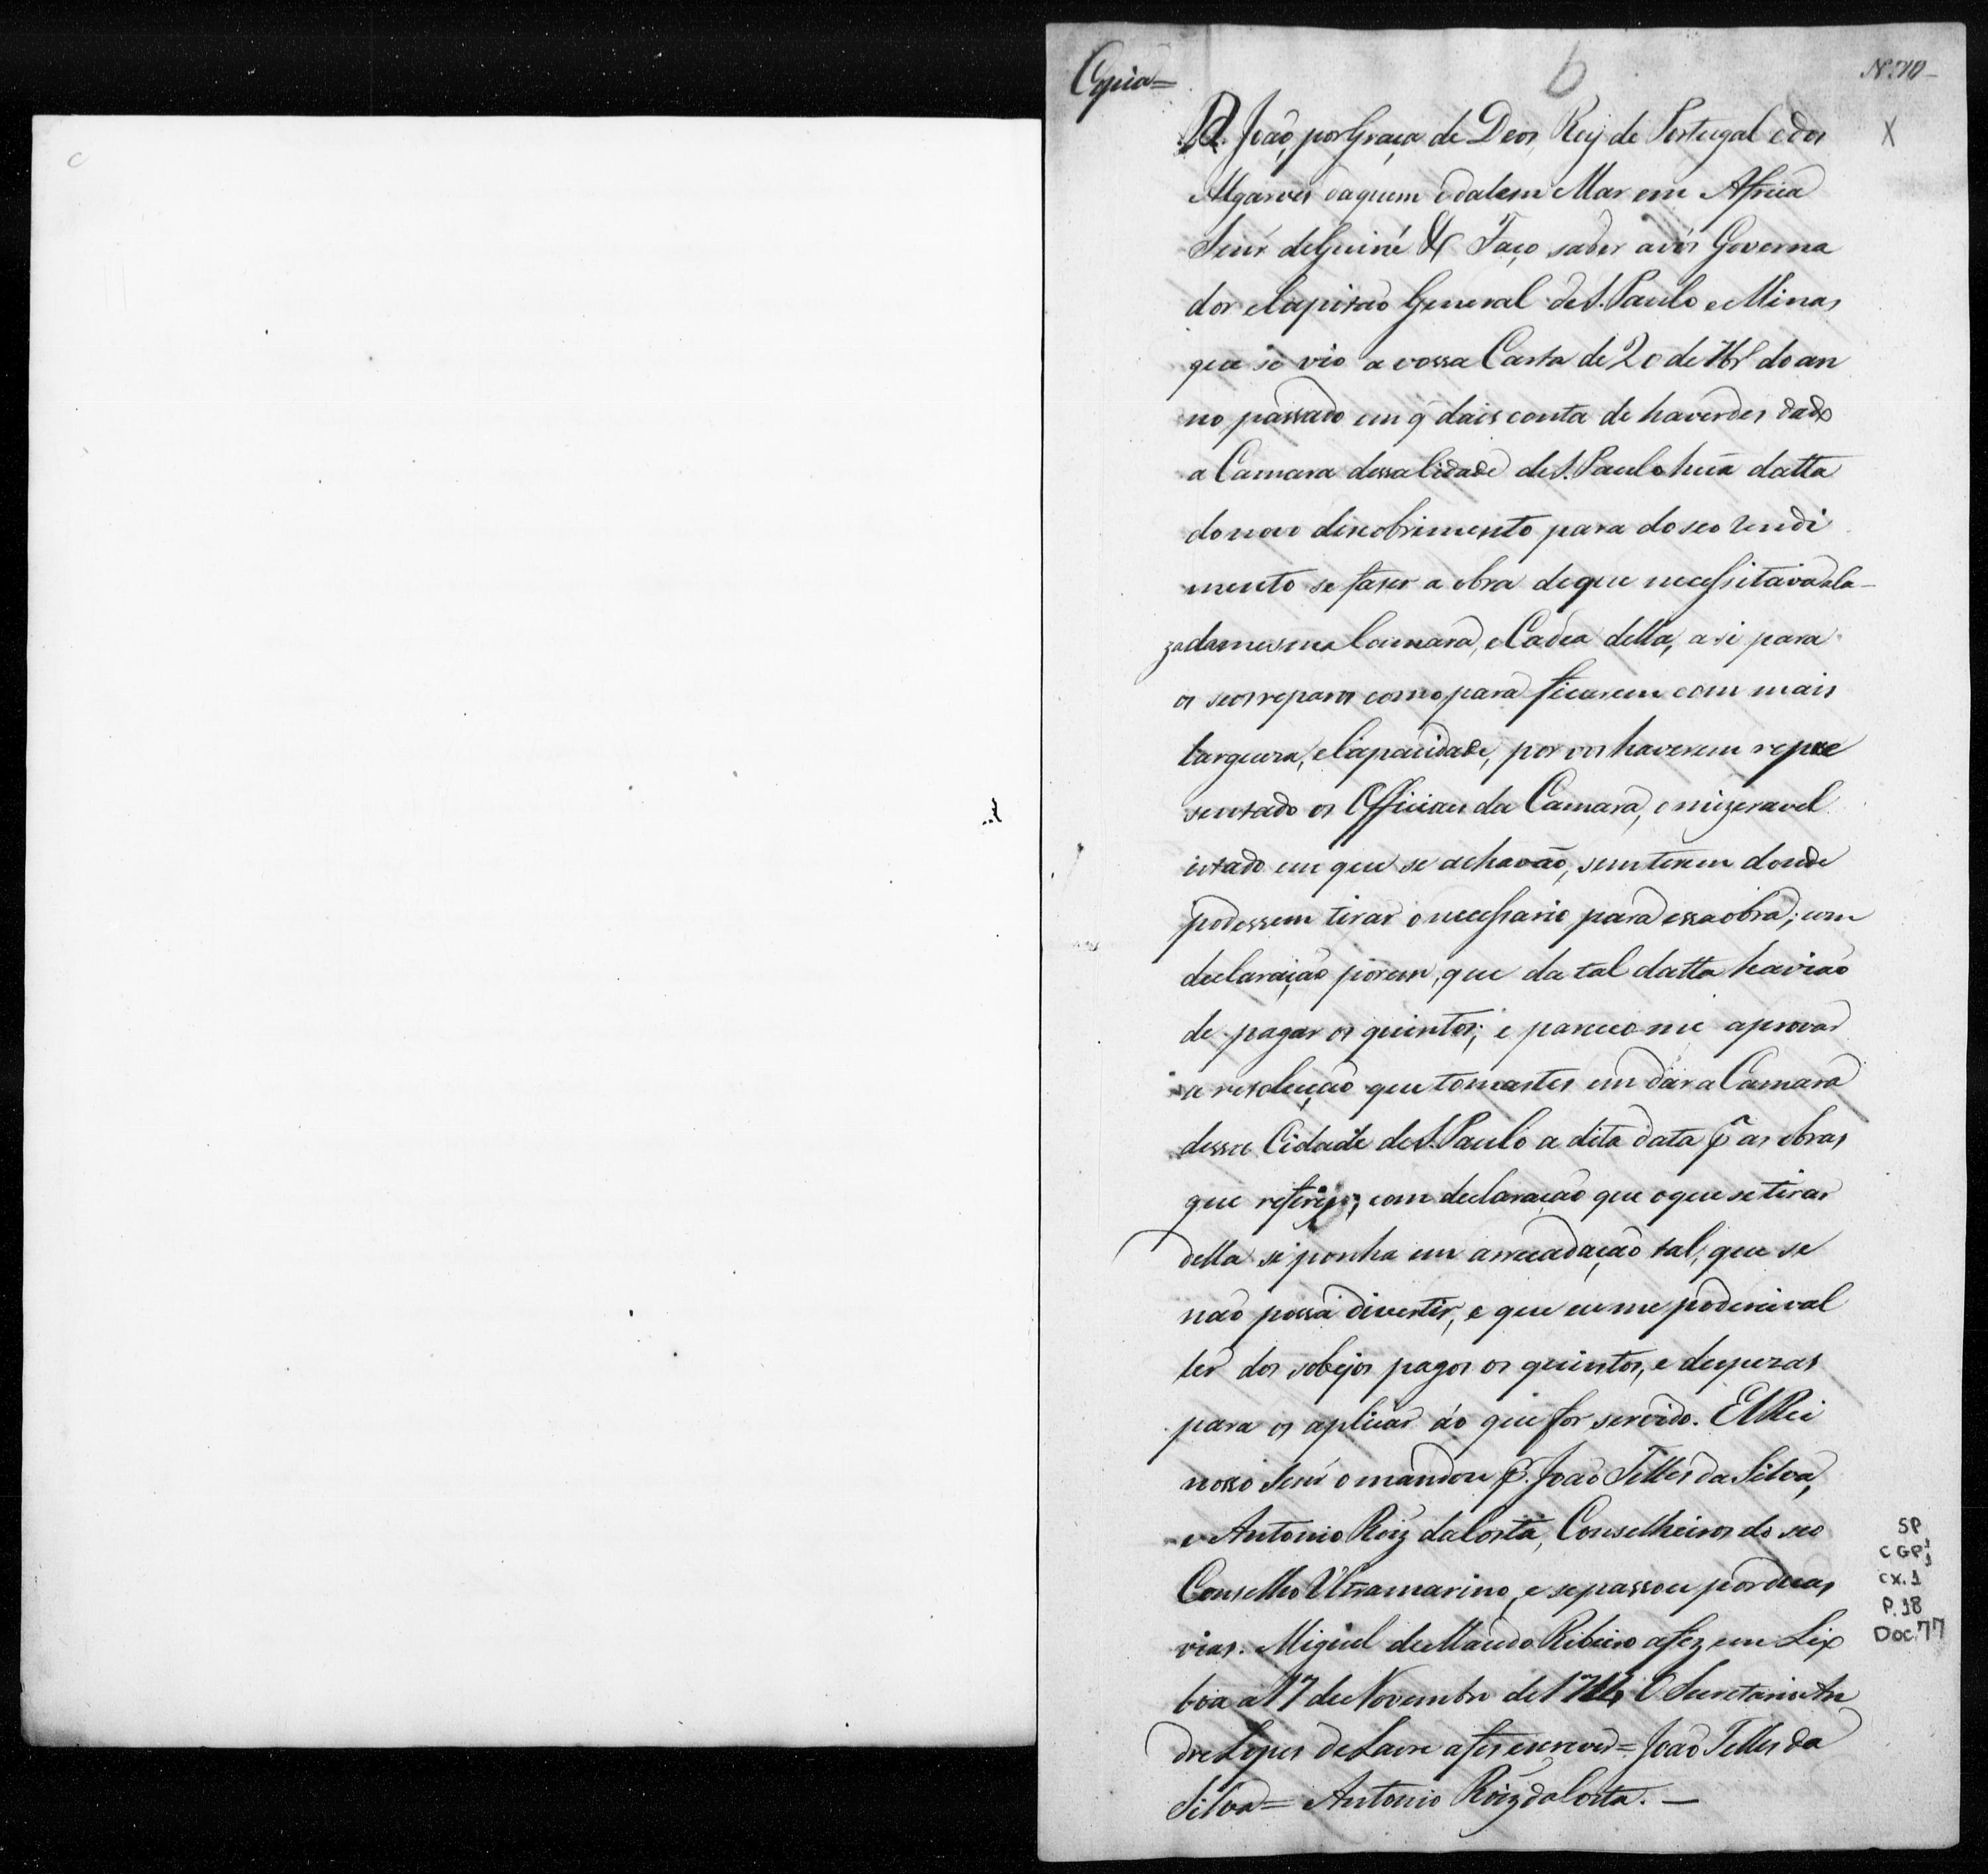 Copia=
6
N.º 70-
X
D. João, por Graça de Deos, Rey de Portugal e dos
Algarves daquem e dalem Mar em Africa
Senr de Guiné &c Faço saber avós Governa
dor e Capitão General de S. Paulo e Minas
que se vio a vossa Carta de 20 de 7br do an
no passado em q̃ dais conta de haverdes dado
a Camara dessa Cidade de S. Paulo huã datta
do novo descobrimento para do seo rendi
mento se faser a obra de que necessitava a Ca-
za da mesma Camara, e Cadea della, asi para
os seos reparos como para ficarem com mais
largueza, e Capacidade, por vos haverem repre
sentado os Officiaes da Camara, o mizeravel
estado em que se achavão, sem terem donde
podessem tirar o necessario para essa obra; com
declaração porem, que da tal datta havião
de pagar os quintos; e pareceo me aprovar
a resolução que tomastes em dar a Camara
dessa Cidade de S. Paulo a dita data pª as obras
que referis; com declaração que o que se tirar
della se ponha em arrecadação tal, que se
não possa divertir, e que eu me poderei val
ler dos sobejos pagos os quintos, e despezas
para os aplicar áo que for servido. ElRei
nosso Senr o mandou p. João Telles da Silva,
e Antonio Roiz da Costa, Conselheiros do seo
Conselho Ultramarino, e se passou por duas
vias. Miguel de Macedo Ribeiro a fez em Lix
boa a 17 de Novembro de O Secretario An
dre Lopes de Lavre a fes escrever= João Telles da
Silva= Antonio Roiz da Costa. —
SP
CGP,
cx. 1
P. 18
Doc 77